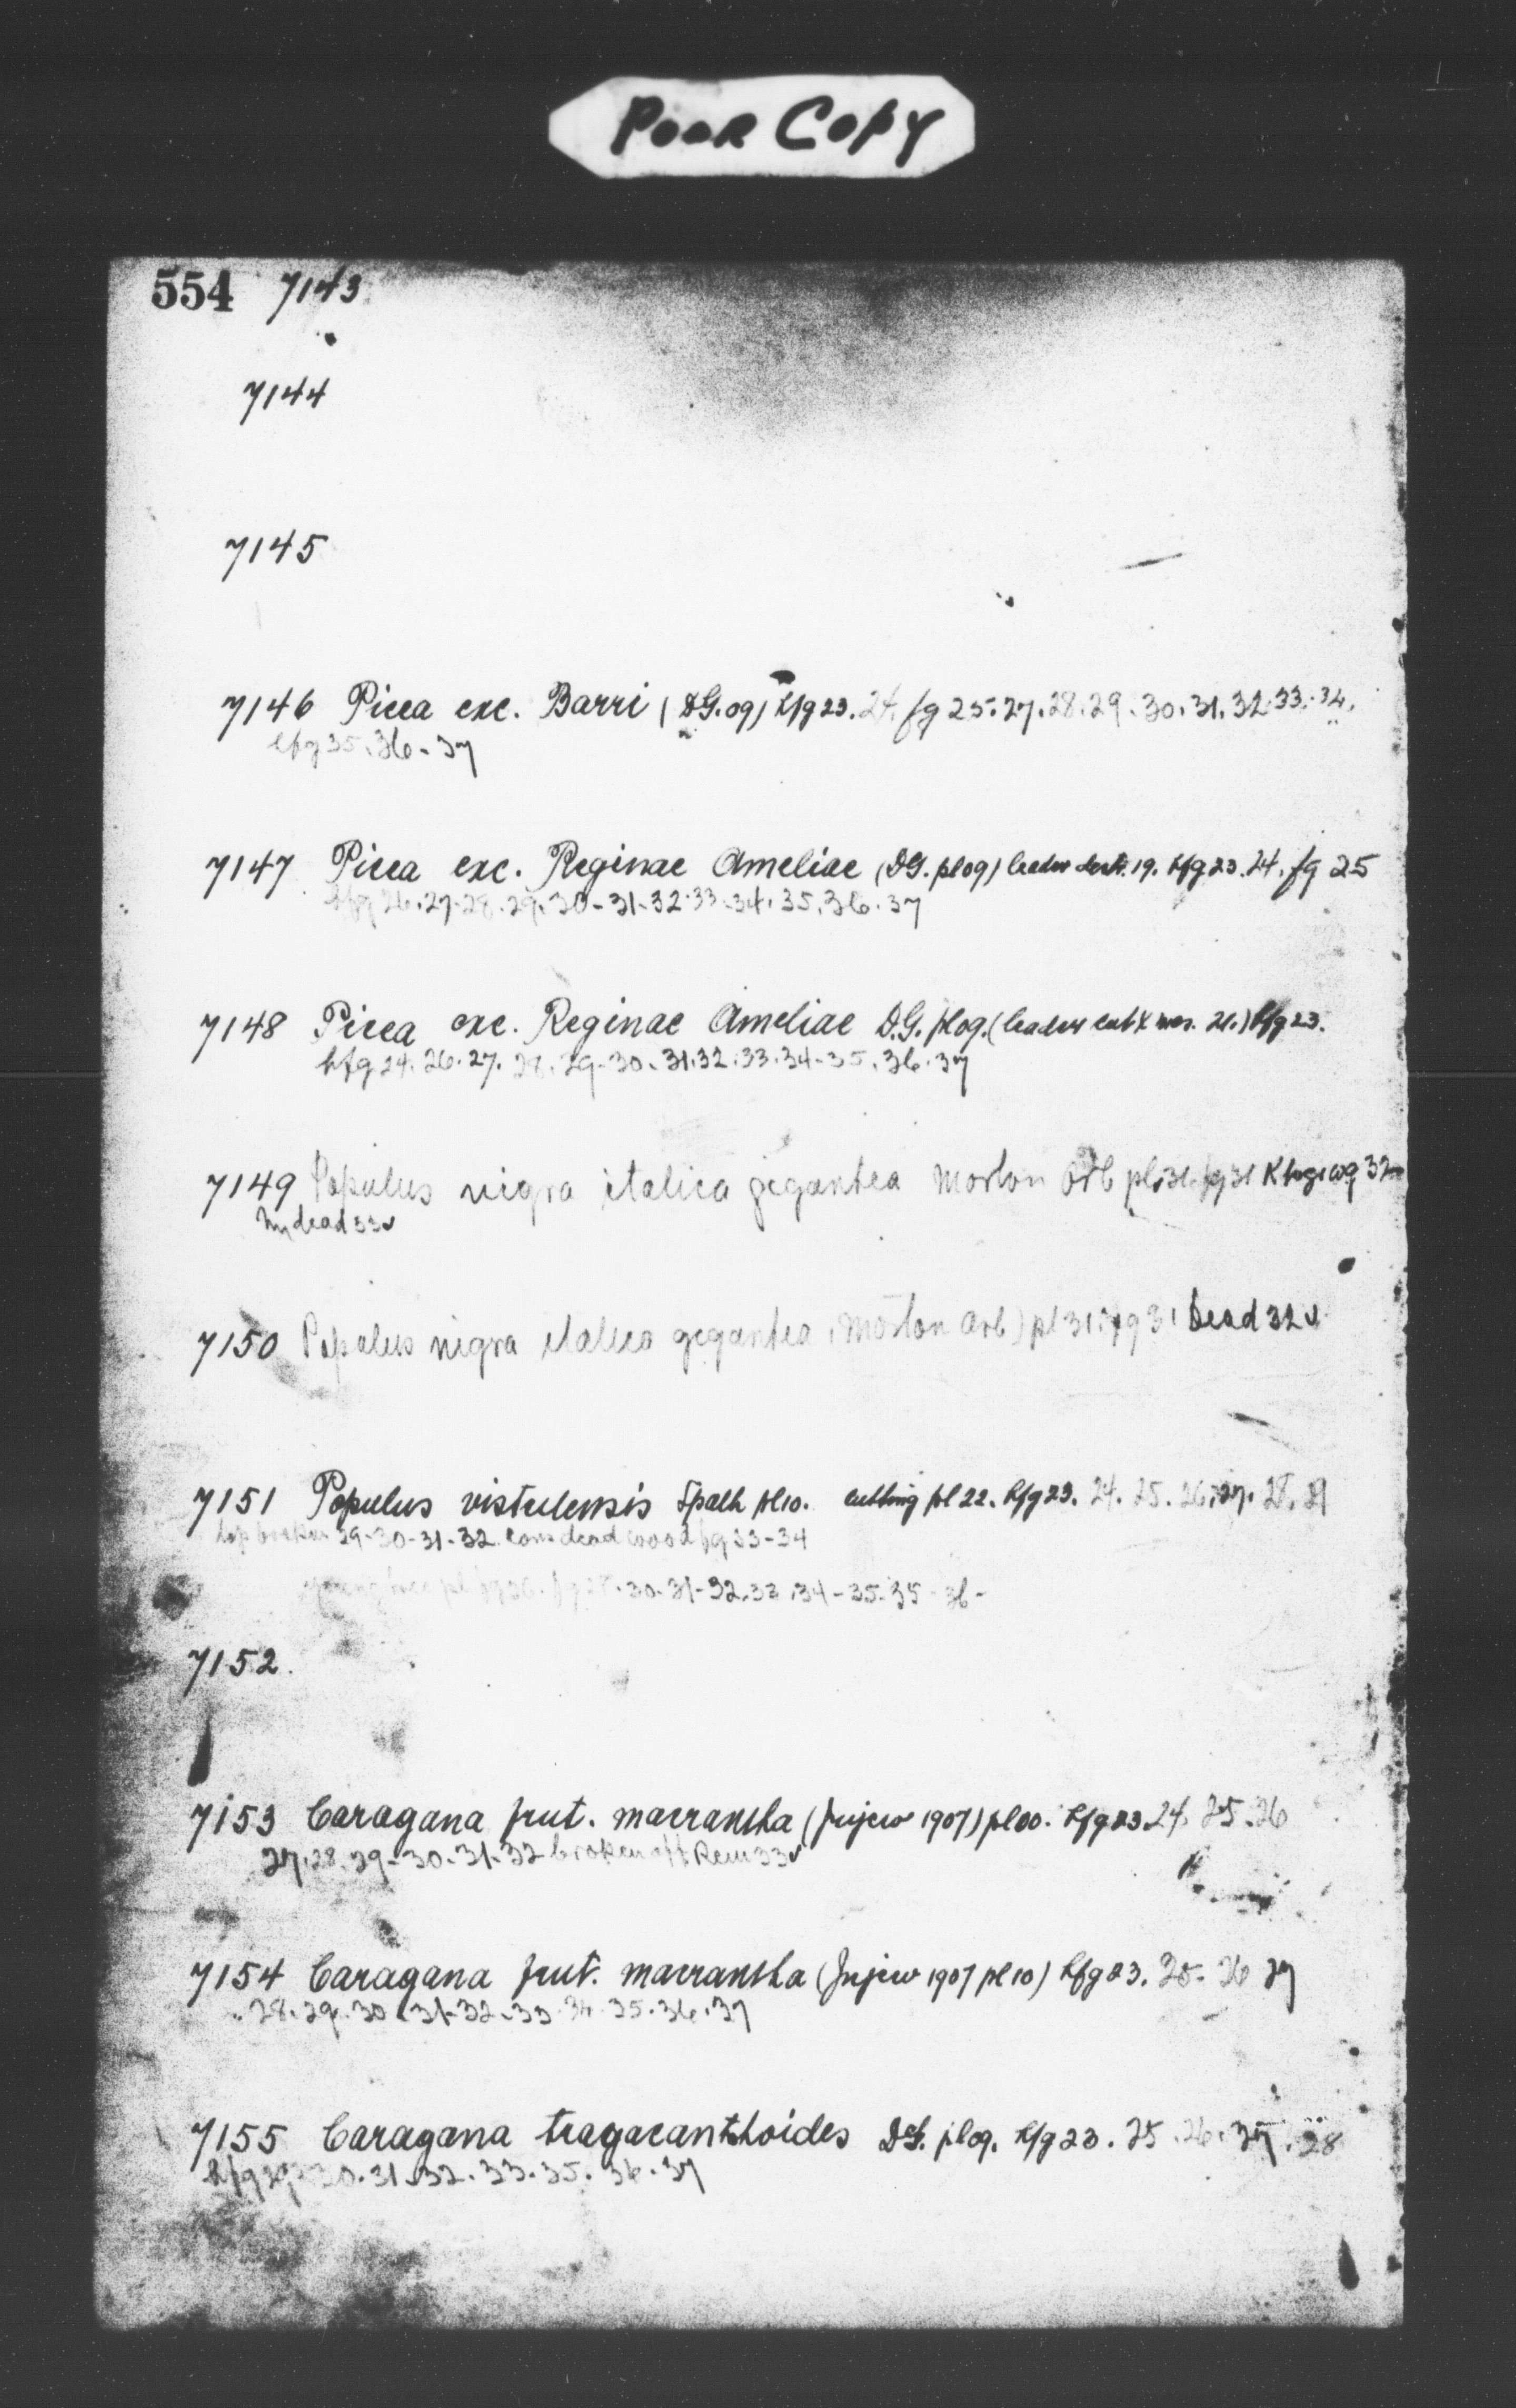 Poor Copy
554 7143
7144
7145
7146 Picea exc. Barri (D.G. 09) hfg 23. 24. fg 25. 27. 28. 29. 30. 31. 32. 33. 34.
hfg 35. 36 - 37
7147 Picea exc. Reginae Ameliae (D.G. pl 09) leader 19. hfg 23. 24. fg 25
hfg 26. 27. 28. 29. 30 - 31 - 32. 33. 34. 35. 36. 37
7148 Picea exc. Reginae Ameliae D.G. pl 09. (leader 21.) hfg 23.
hfg 24. 26. 27. 28. 29 - 30. 31. 32. 33. 34 - 35. 36. 37
7149 Populus nigra italica gigantea Morton Arb pl. 31. fg 31 32
dead 33
7150 Populus nigra italica gigantea (Morton Arb) pl 31. fg 31 Dead 32
7151 Populus vistulensis Späth pl 10. cutting pl 22. hfg 23. 24. 25. 26. 27. 28. 29
top broken 29 - 30 - 31 - 32. dead wood fg 33 - 34
young tree pl fg 30 - 31 - 32. 33. 34 - 35. 35 - 36 -
7152.
7153 Caragana frut. macrantha (Jnjew 1907) pl 00. hfg 23. 24. 25. 26
27. 28. 29 - 30 - 31 - 32 broken off Rem 33
7154 Caragana frut. macrantha (Jnjew 1907 pl 10) hfg 23. 25 - 26 27
28. 29. 30. 31 - 32 - 33. 34. 35. 36. 37
7155 Caragana tragacanthoides D.G. pl 09. hfg 23. 25. 26. 27. 28
hfg 29. 30. 31. 32. 33. 35. 36. 37